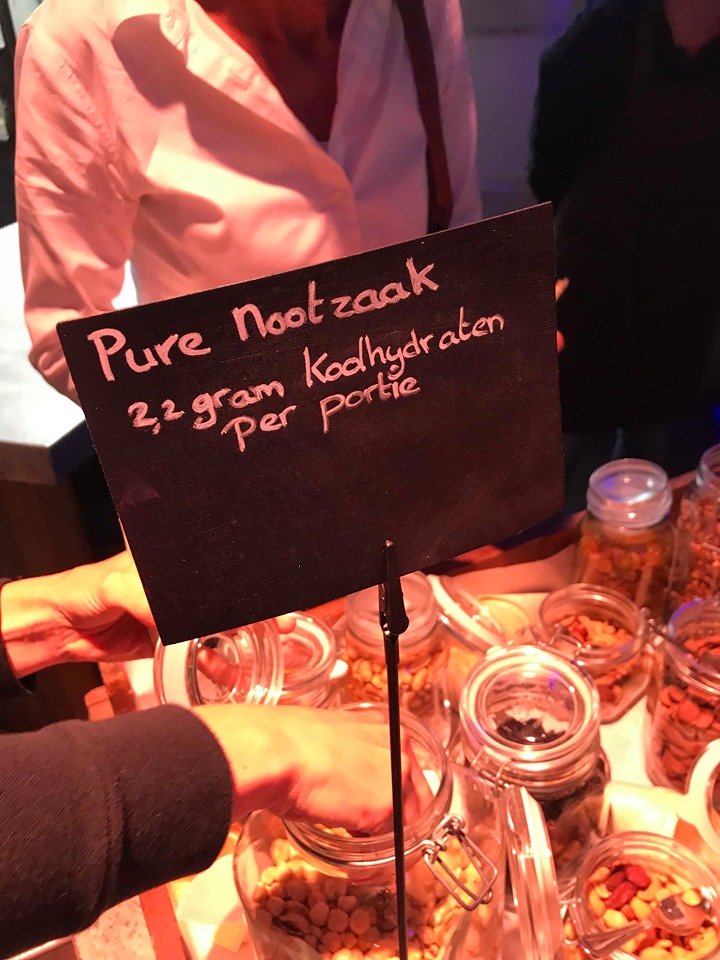 Pure Nootzaak
2,2 gram Koolhydraten
Per portie